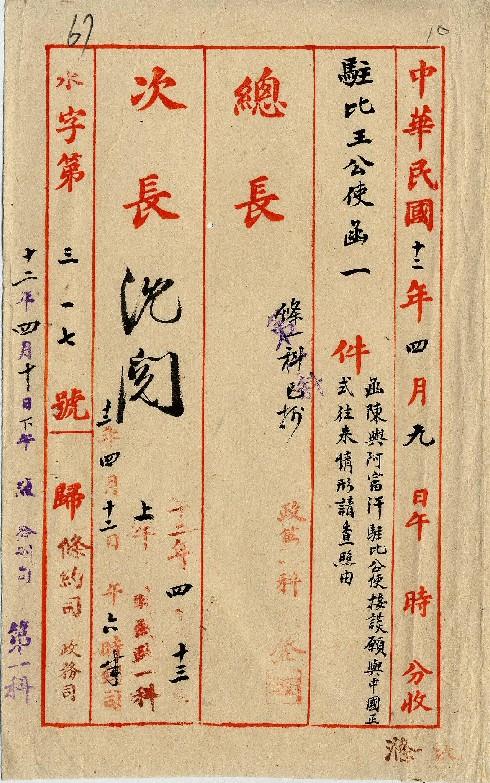 中華民國十二年四月九日午時分收
駐比王公使函一件
函陳與阿富汗駐比公使接談願與中國正
式往來情形請查照由
總長
條一科已抄
次長
沈閱
十二年四月十二日上午
四 十三
水字第三一七號
歸條約司 政務司
十二年四月十日下午
第一科
67
10